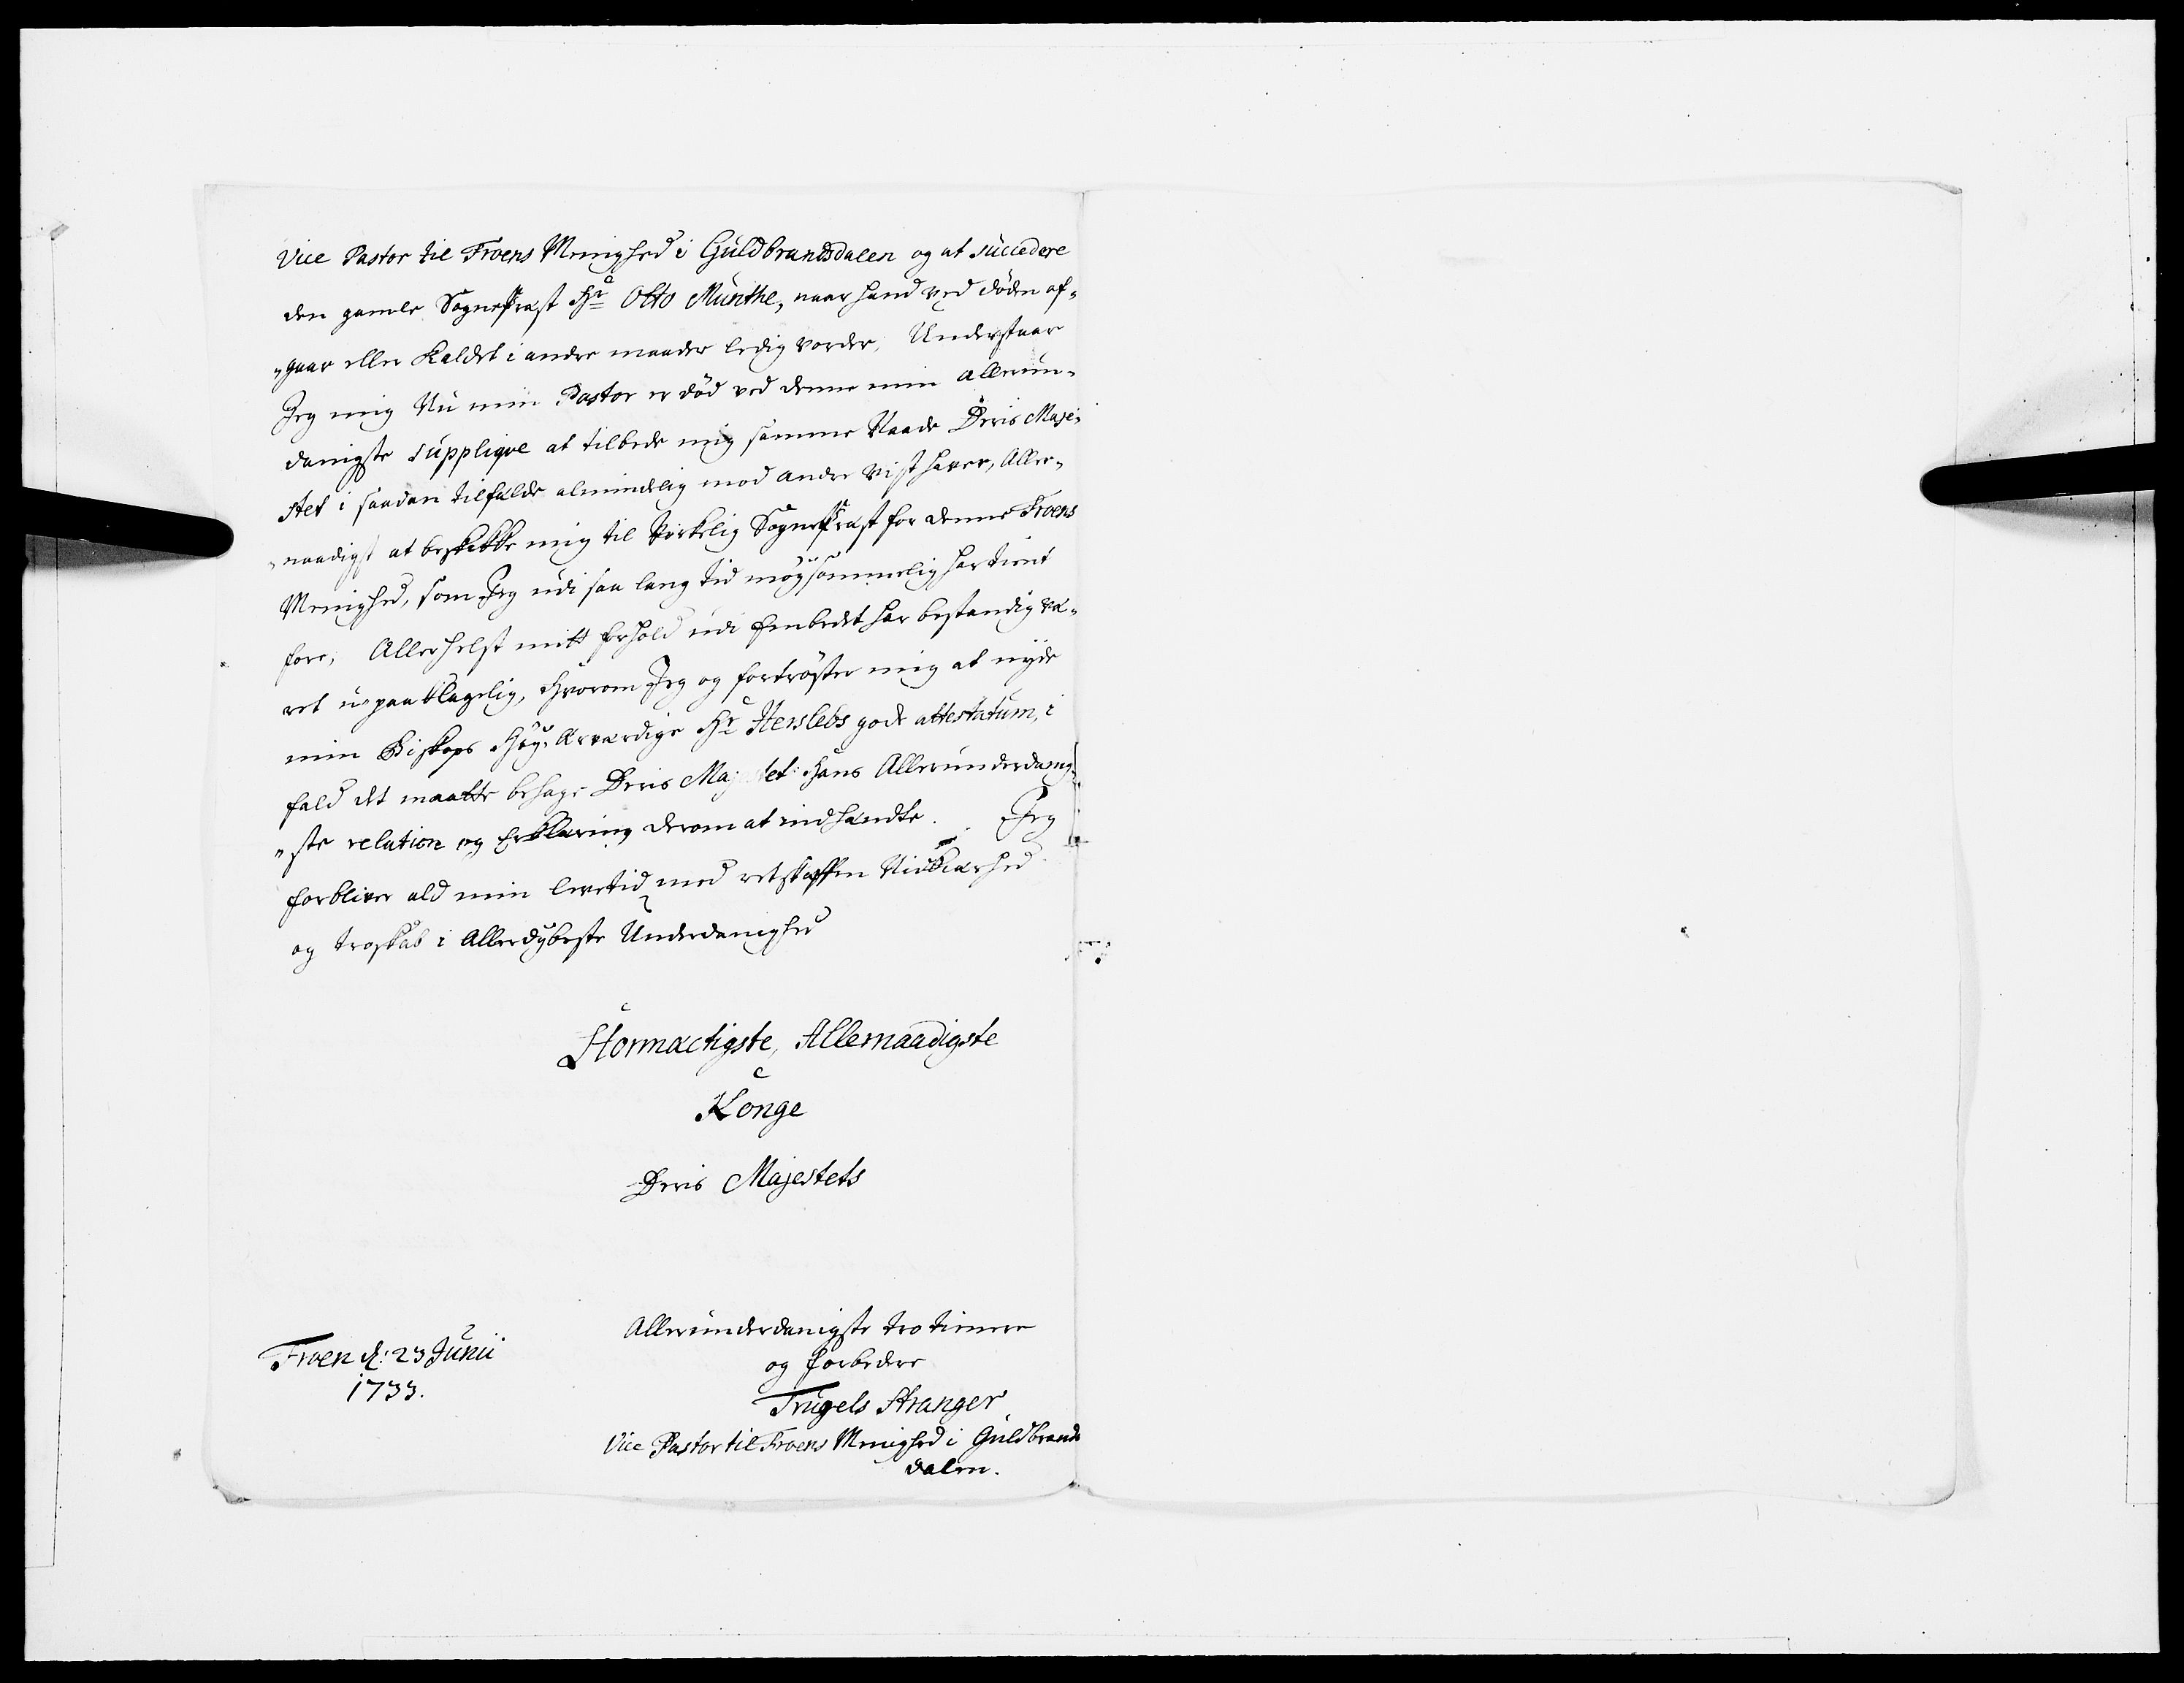 Vice Pastor til Froens Menighed i Guldbrandsdalen og at succedere
den gamle Sognepræst Hr Otto Munthe, naar hand ved döden af-
"gaar eller Kaldet i andre maader ledig vorder, Understaar
Jeg mig Nu min Pastor er död ved denne min allerun-
danigste supplique at tilbede mig samme Naade Deris Maje-
stet i saadan tilfælde almindelig mod andre vist haver, Aller-
"naadigst at beskikke mig til Virkelig Sognepræst for denne Froens
Menighed, som Jeg udi saa lang tid möysommelig har tient
fore, Allerhelst mitt forhold udi Embedet har bestandig væ-
ret u-paaklagelig, hvorom Jeg og fortröster mig at nyde
min Biskops Höy-Ærværdige Hr Herslebs gode attestatum, i
fald det maatte behage Deris Majestet hans Allerunderdanig-
"ste relation og Erklæring derom at indhændte. Jeg
forbliver ald min livstid med retskaffen Nidkiærhed
og troskab i Allerdybeste Underdanighed
Stormæctigste, Allernaadigste
Konge
Deris Majestets
Allerunderdanigste tro tienere
og forbedere
Froen d: 23 Junii
1733.
Trugels Stranger
Vice Pastor til Froens Menighed i Guldbrands
dalen.